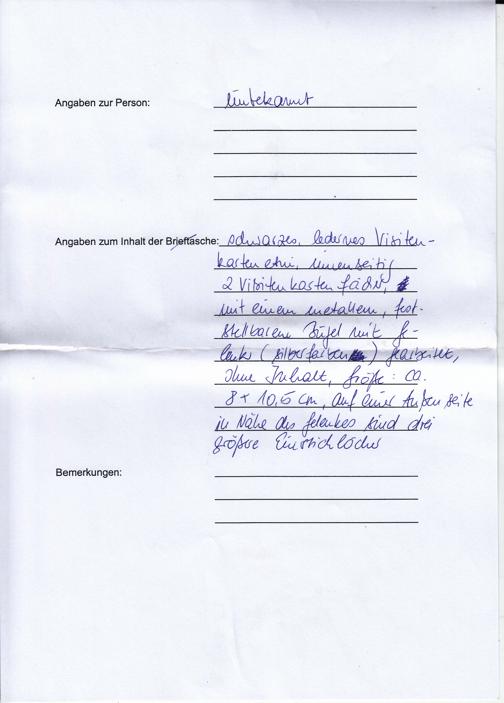 Angaben zur Person: unbekannt
Angaben zum Inhalt der Brieftasche: schwarzes, ledernes Visiten-
kartenetui, innenseitig
2 Visitenkartenfächer,
mit einem metallern, fest-
stellbarem Bügel mit Ge-
lenk (silberfarben) gearbeitet,
ohne Inhalt, Größe: ca.
8 x 10,5 cm, auf einer Außenseite
in Nähe des Gelenkes sind drei
größere Einstichlöcher
Bemerkungen: